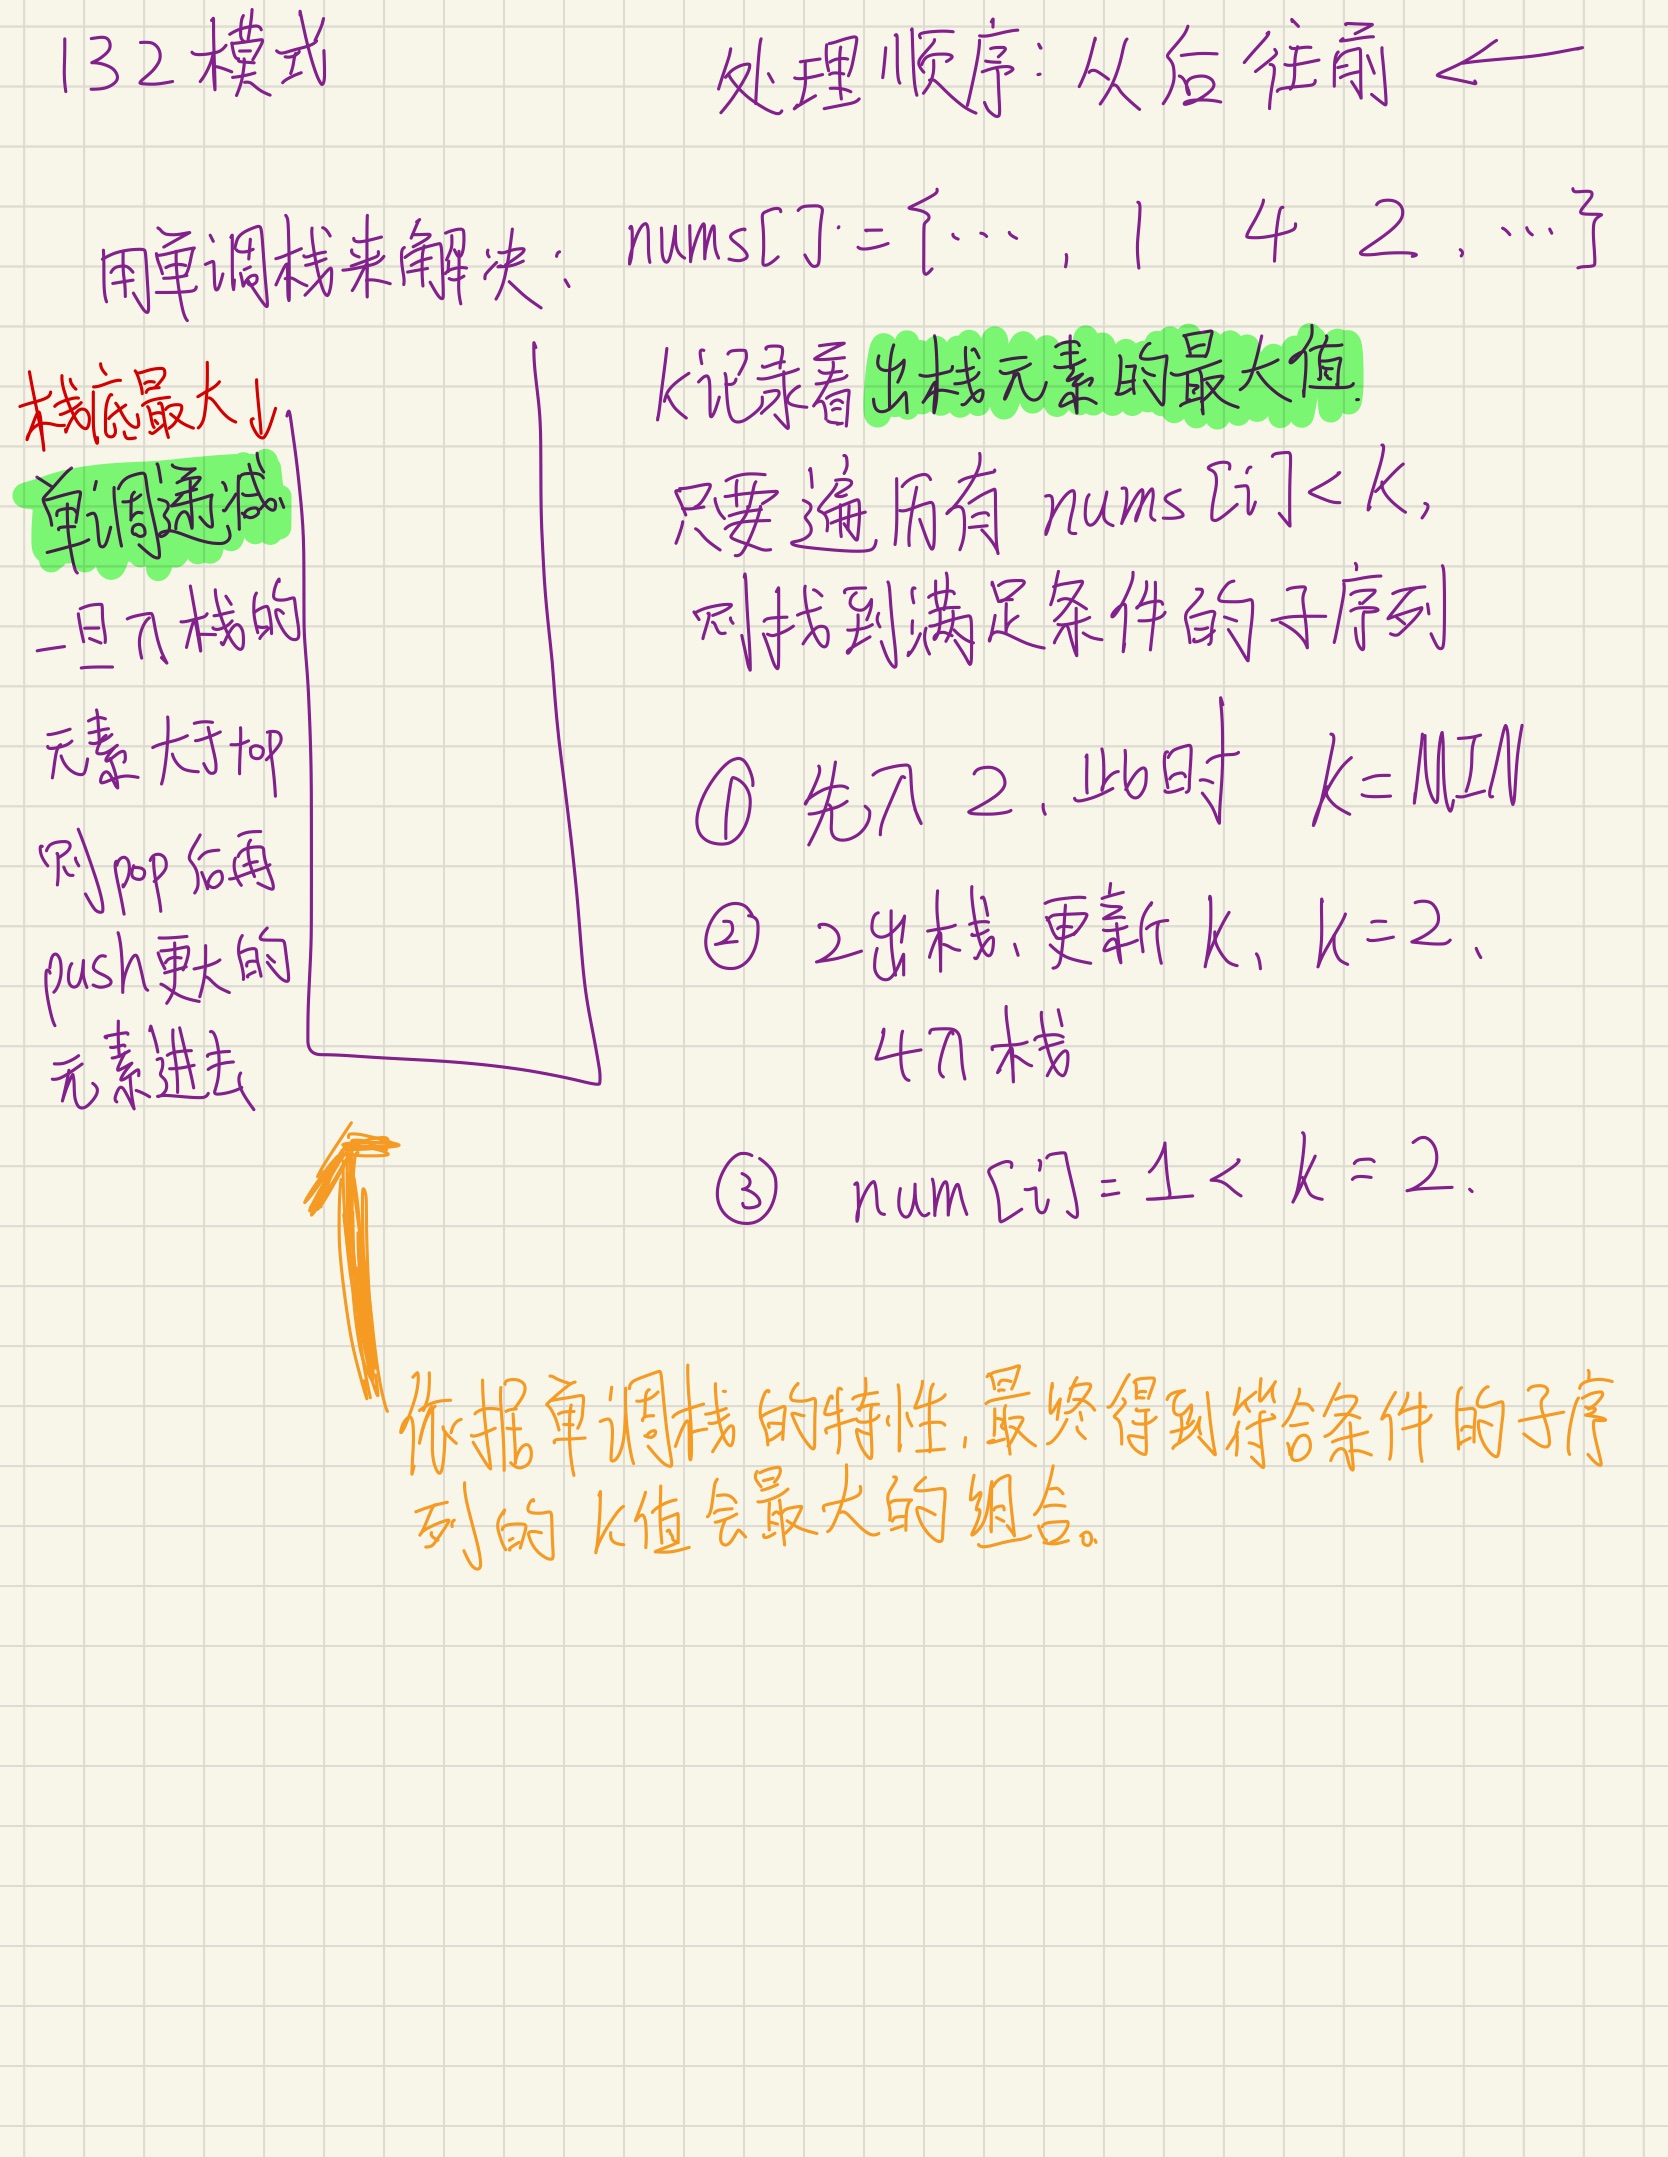 132模式
处理顺序:从后往前 ←
用单调栈来解决: nums[] = {… , 1 4 2, …}
栈底最大↓
单调递减。
一旦入栈的
元素大于top
则pop后再
push更大的
元素进去
k记录着出栈元素的最大值.
只要遍历有 nums[i] < k,
则找到满足条件的子序列
① 先入 2, 此时 k=MIN
② 2出栈, 更新 k, k=2.
4入栈
③ num[i] = 1 < k = 2.
依据单调栈的特性,最终得到符合条件的子序
列的k值会最大的组合。